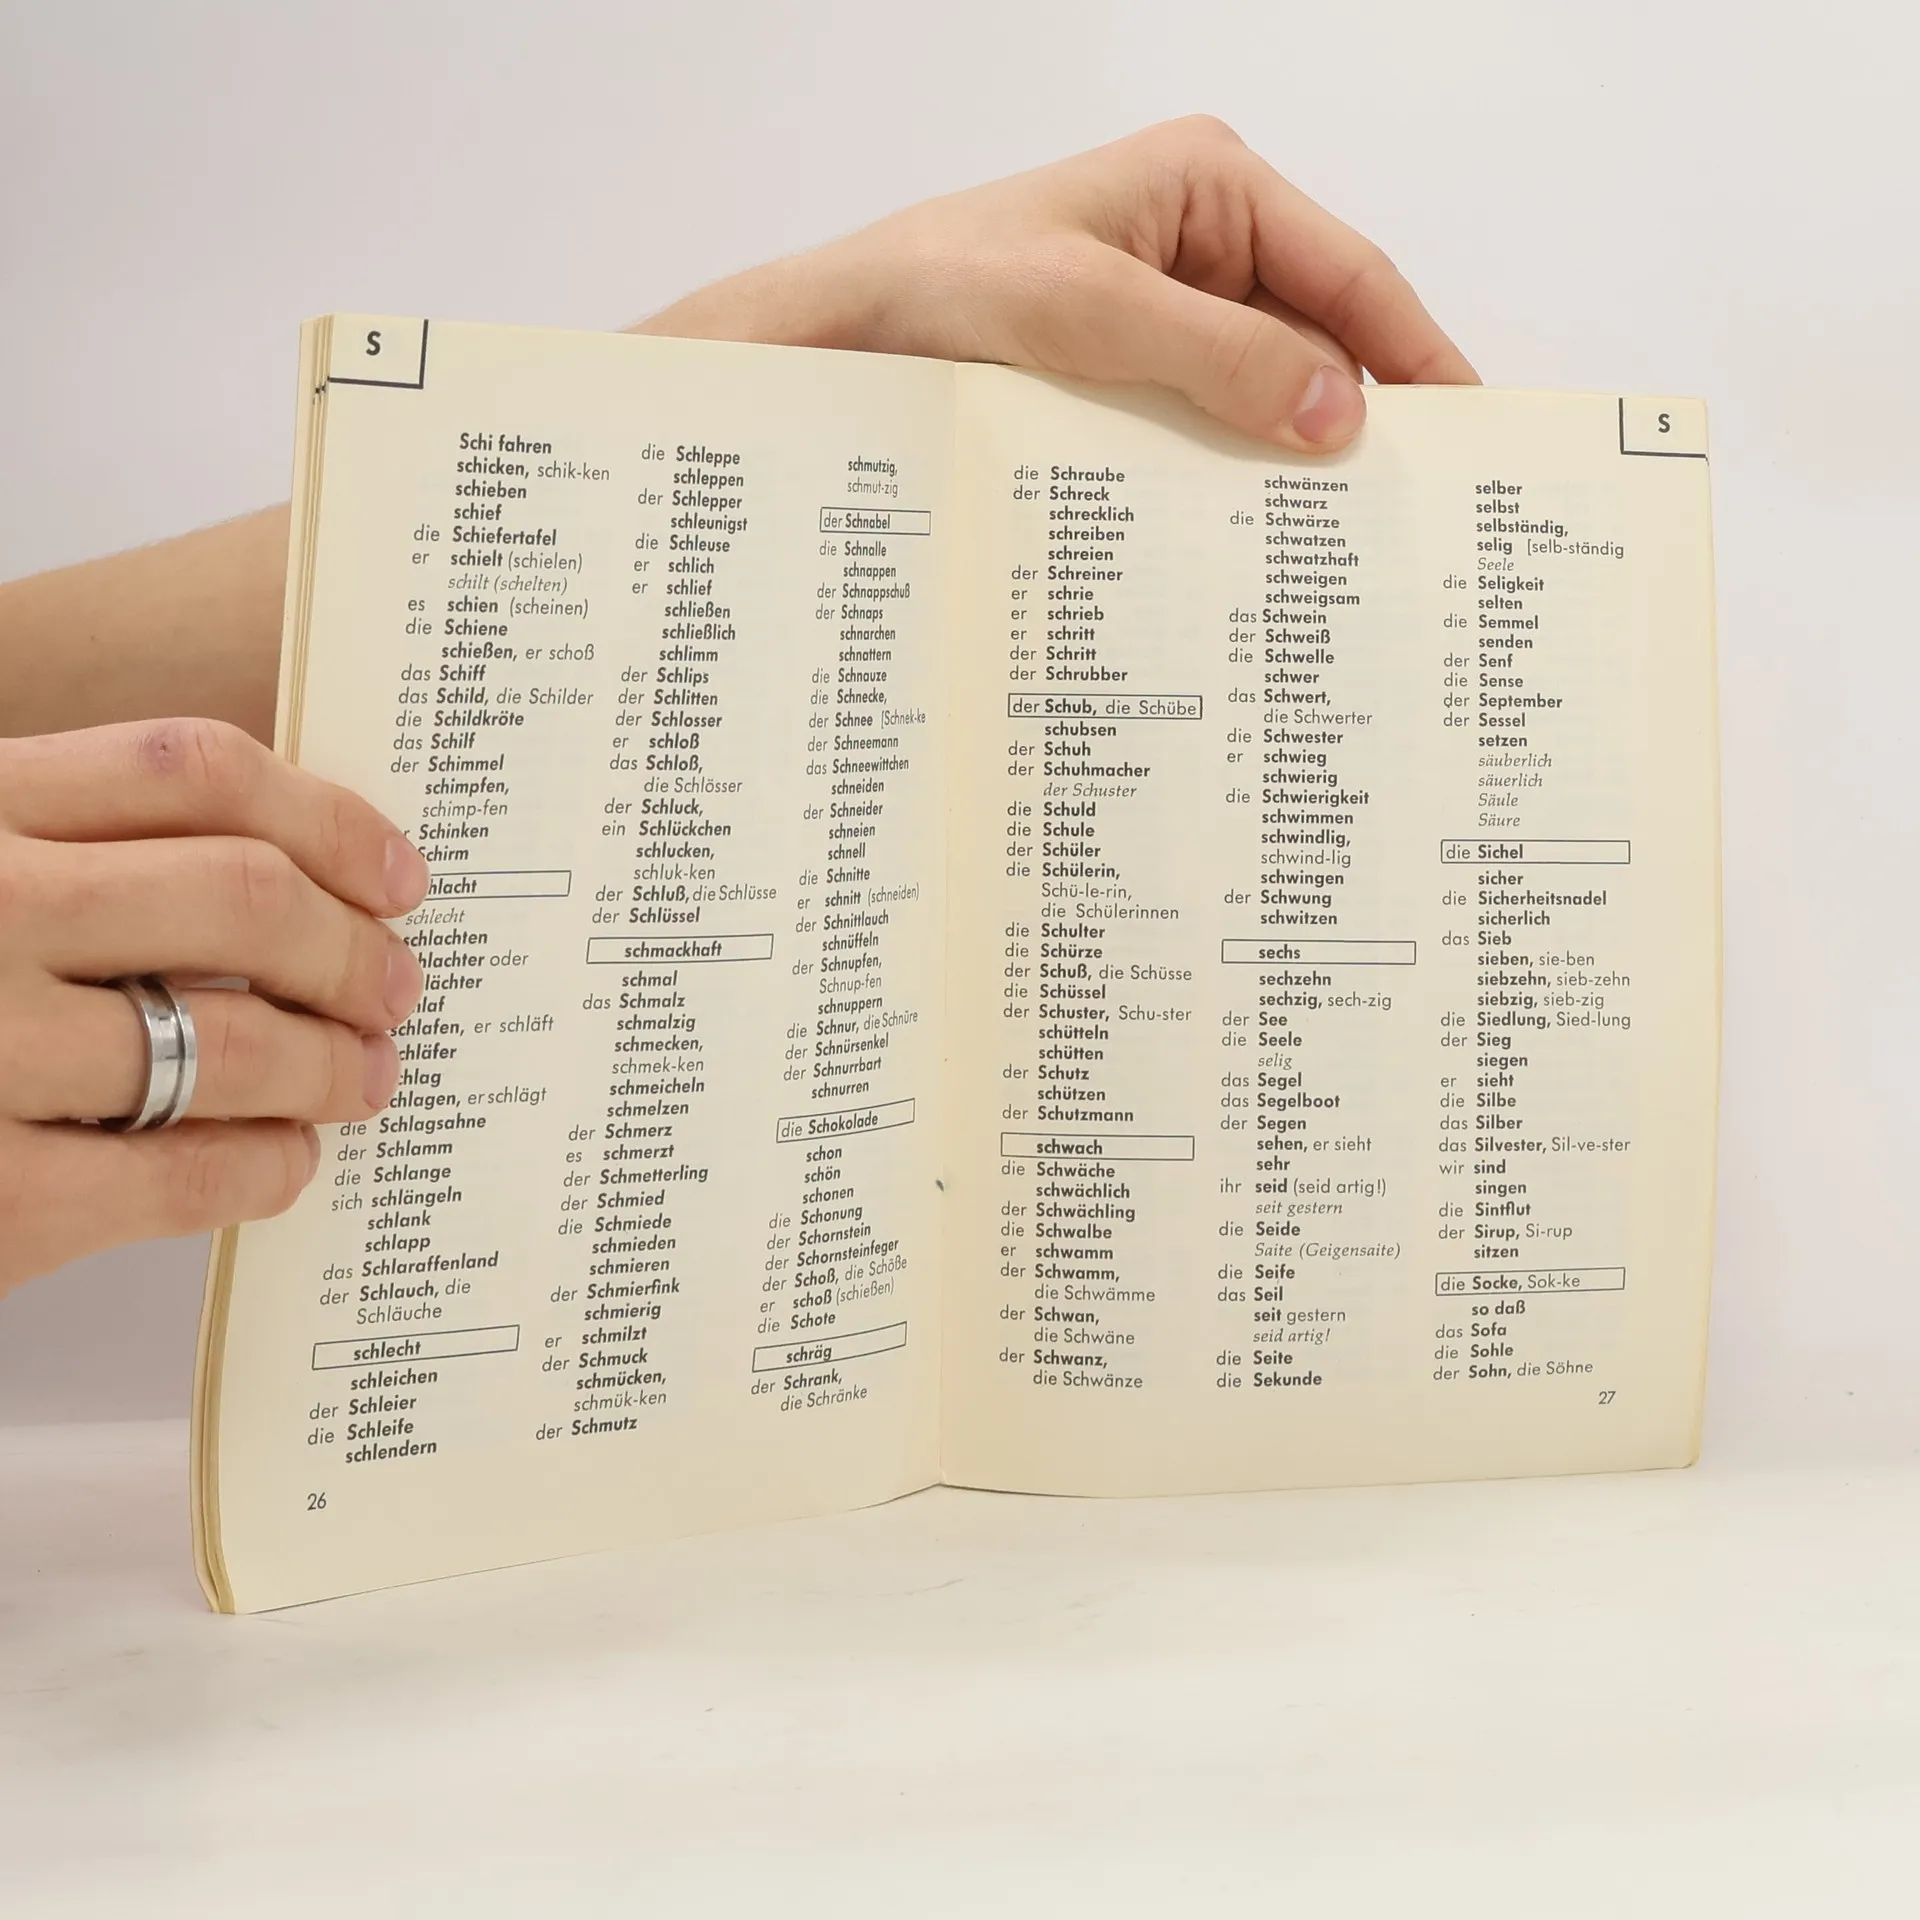 S
Schi fahren
schicken, schik-ken
schieben
schief
die Schiefertafel
er schielt (schielen)
schilt (schelten)
es schien (scheinen)
die Schiene
schießen, er schoß
das Schiff
das Schild, die Schilder
die Schildkröte
das Schilf
der Schimmel
schimpfen,
schimp-fen
Schinken
Schirm
schlecht
schlachten
oder
schlafen, er schläft
er schlägt
die Schlagsahne
der Schlamm
die Schlange
sich schlängeln
schlank
schlapp
das Schlaraffenland
der Schlauch, die
Schläuche
schlecht
schleichen
der Schleier
die Schleife
schlendern
26
die Schleppe
schleppen
der Schlepper
schleunigst
die Schleuse
er schlich
er schlief
schließen
schließlich
schlimm
der Schlips
der Schlitten
der Schlosser
er schloß
das Schloß,
die Schlösser
der Schluck,
ein Schlückchen
schlucken,
schluk-ken
der Schluß, die Schlüsse
der Schlüssel
schmackhaft
schmal
das Schmalz
schmalzig
schmecken,
schmek-ken
schmeicheln
schmelzen
der Schmerz
es schmerzt
der Schmetterling
der Schmied
die Schmiede
schmieden
schmieren
der Schmierfink
schmierig
er schmilzt
der Schmuck
schmücken,
schmük-ken
der Schmutz
schmutzig,
schmut-zig
der Schnabel
die Schnalle
schnappen
der Schnappschuß
der Schnaps
schnarchen
schnattern
die Schnauze
die Schnecke,
der Schnee [Schnek-ke
der Schneemann
das Schneewittchen
schneiden
der Schneider
schneien
schnell
die Schnitte
er schnitt (schneiden)
der Schnittlauch
schnüffeln
der Schnupfen,
Schnup-fen
schnuppern
die Schnur, die Schnüre
der Schnürsenkel
der Schnurrbart
schnurren
die Schokolade
schon
schön
schonen
die Schonung
der Schornstein
der Schornsteinfeger
der Schoß, die Schöße
er schoß (schießen)
die Schote
schräg
der Schrank,
die Schränke
S
die Schraube
der Schreck
schrecklich
schreiben
schreien
der Schreiner
er schrie
er schrieb
er schritt
der Schritt
der Schrubber
der Schub, die Schübe
schubsen
der Schuh
der Schuhmacher
der Schuster
die Schuld
die Schule
der Schüler
die Schülerin,
Schü-le-rin,
die Schülerinnen
die Schulter
die Schürze
der Schuß, die Schüsse
die Schüssel
der Schuster, Schu-ster
schütteln
schütten
der Schutz
schützen
der Schutzmann
schwach
die Schwäche
schwächlich
der Schwächling
die Schwalbe
er schwamm
der Schwamm,
die Schwämme
der Schwan,
die Schwäne
der Schwanz,
die Schwänze
schwänzen
schwarz
die Schwärze
schwatzen
schwatzhaft
schweigen
schweigsam
das Schwein
der Schweiß
die Schwelle
schwer
das Schwert,
die Schwerter
die Schwester
er schwieg
schwierig
die Schwierigkeit
schwimmen
schwindlig,
schwind-lig
schwingen
der Schwung
schwitzen
sechs
sechzehn
sechzig, sech-zig
der See
die Seele
selig
das Segel
das Segelboot
der Segen
sehen, er sieht
sehr
ihr seid (seid artig!)
seit gestern
die Seide
Saite (Geigensaite)
die Seife
das Seil
seit gestern
seid artig!
die Seite
die Sekunde
selber
selbst
selbständig,
selig [selb-ständig
Seele
die Seligkeit
selten
die Semmel
senden
der Senf
die Sense
der September
der Sessel
setzen
säuberlich
säuerlich
Säule
Säure
die Sichel
sicher
die Sicherheitsnadel
sicherlich
das Sieb
sieben, sie-ben
siebzehn, sieb-zehn
siebzig, sieb-zig
die Siedlung, Sied-lung
der Sieg
siegen
er sieht
die Silbe
das Silber
das Silvester, Sil-ve-ster
wir sind
singen
die Sintflut
der Sirup, Si-rup
sitzen
die Socke, Sok-ke
so daß
das Sofa
die Sohle
der Sohn, die Söhne
27